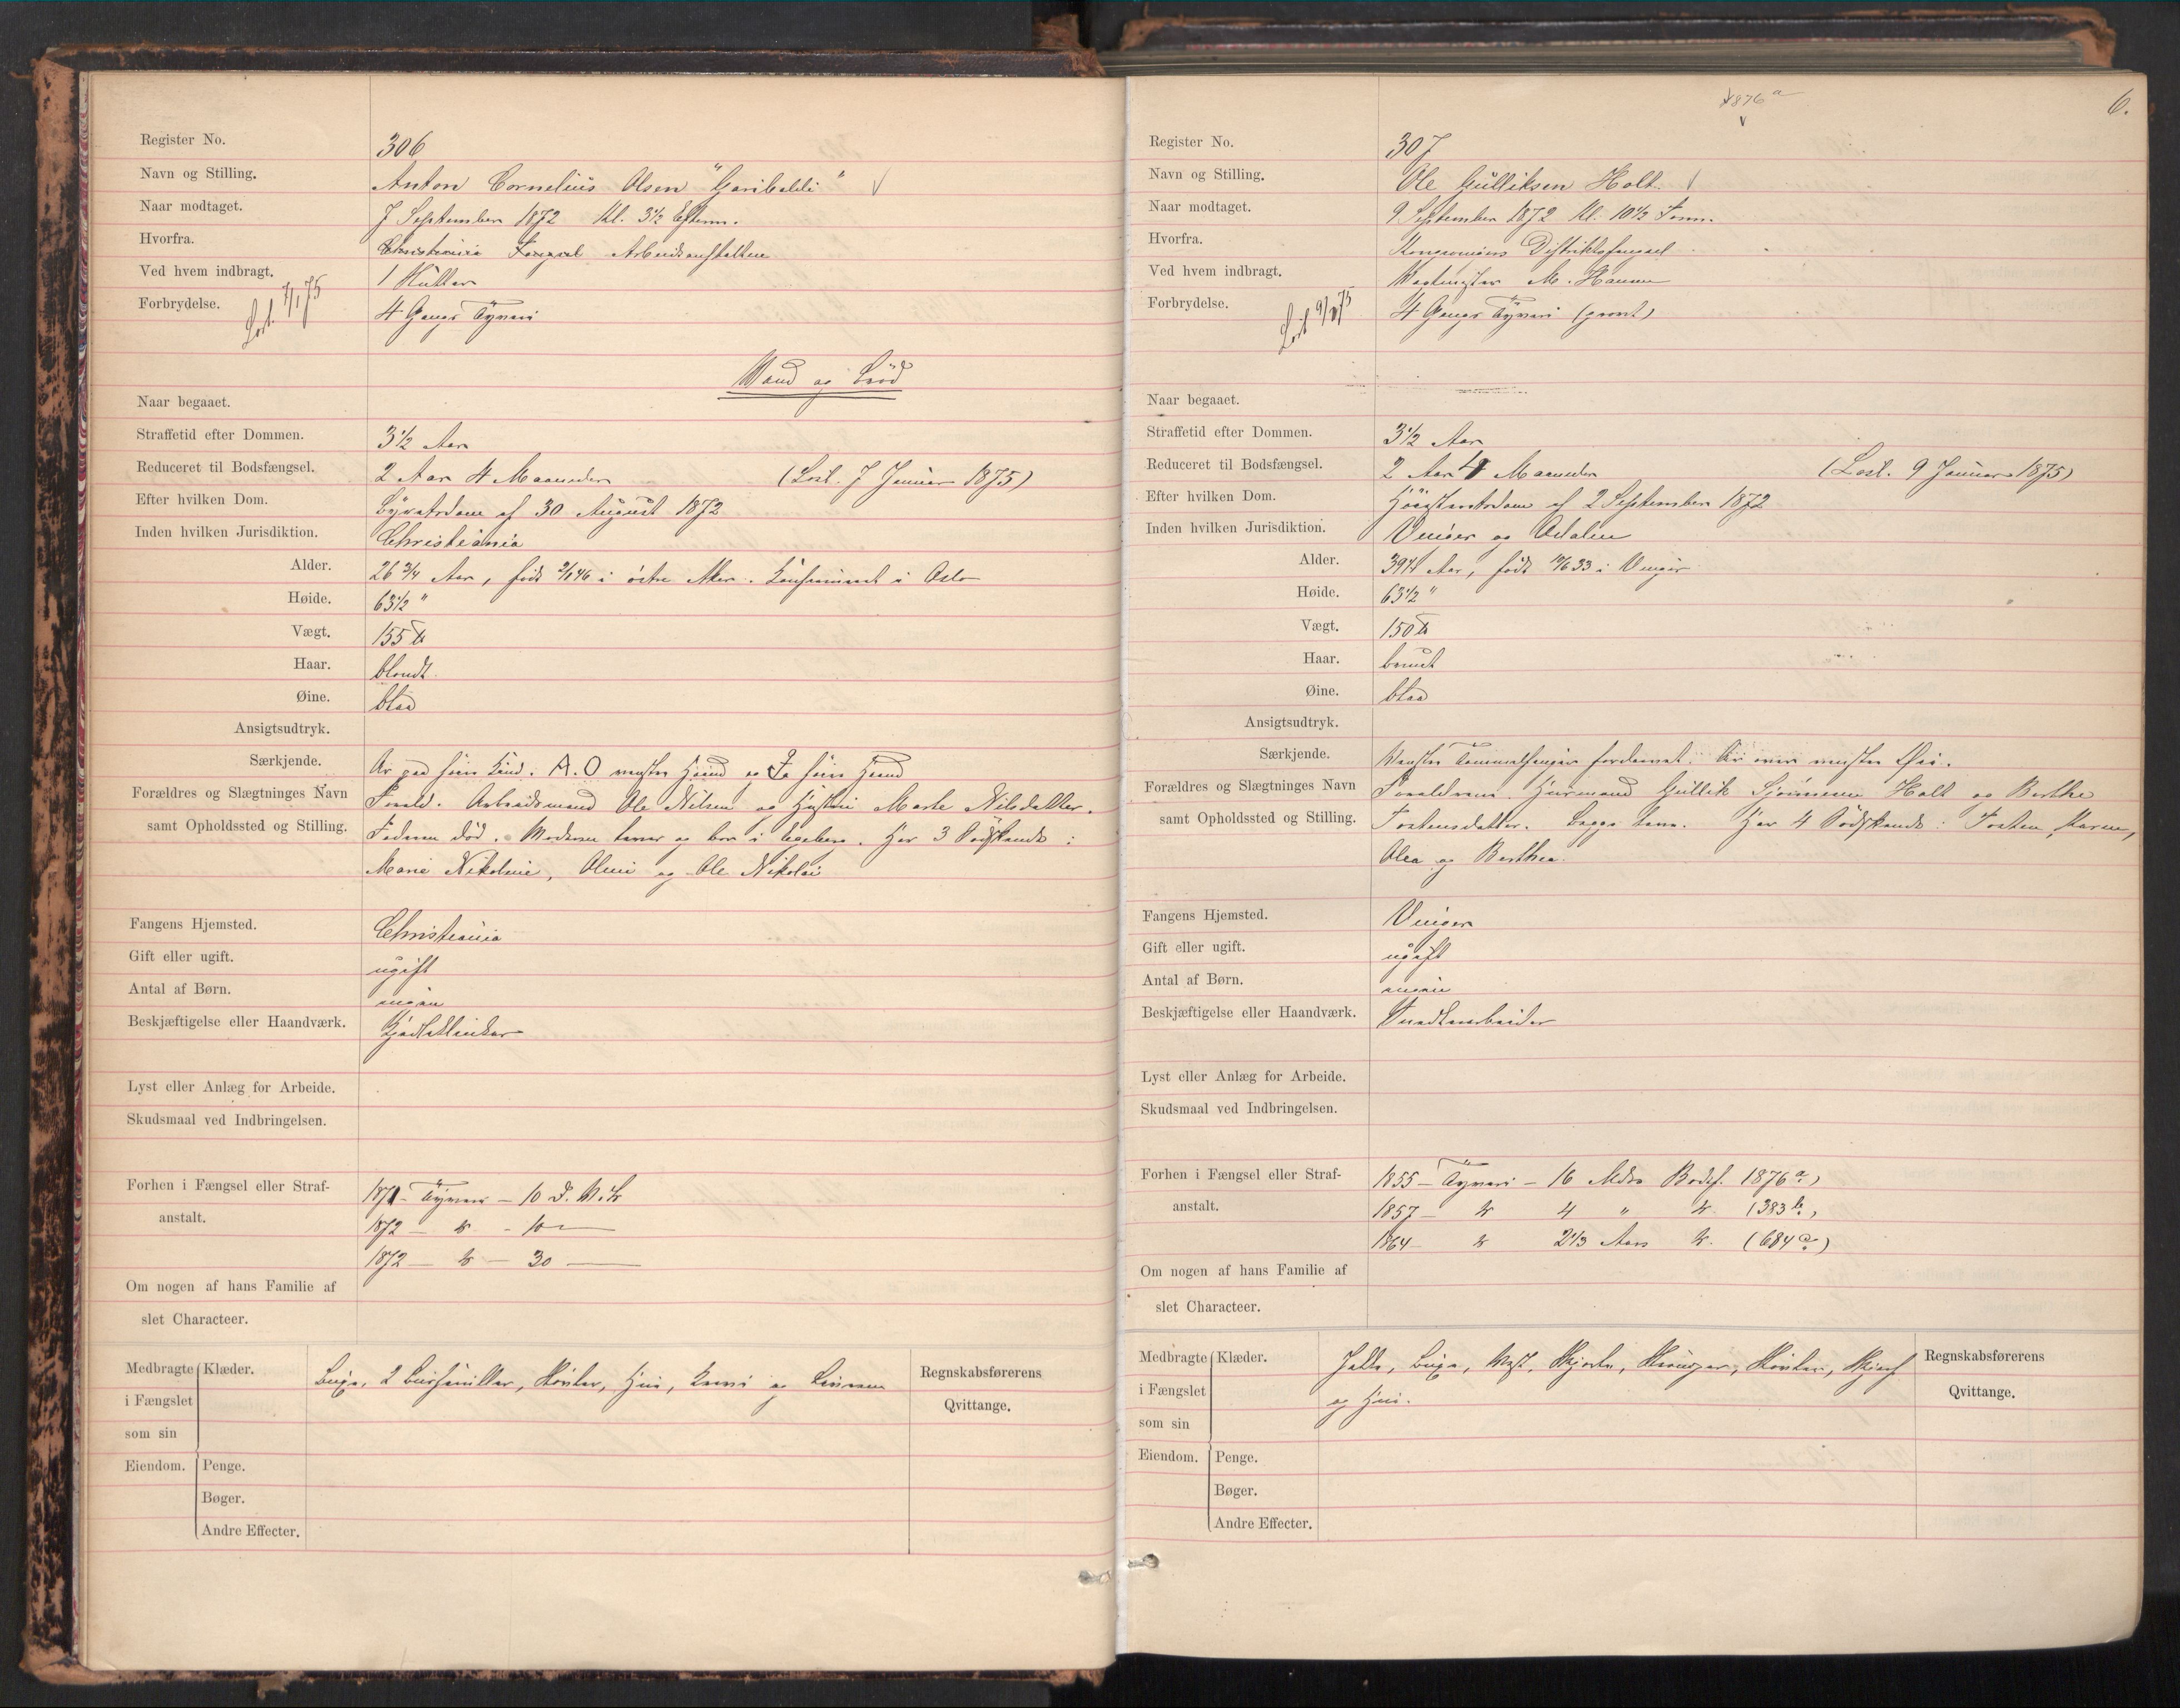 Register No. 306
Navn og Stilling. Anton Cornelius Olsen "Garibaldi"
Naar modtaget. 7 September 1872 Kl. 3½ Efterm.
Hvorfra. Christiania Fængsel Arbeidsanstalten
Ved hvem indbragt. 1 Kutter
Forbrydelse. 4 Gangs Tyveri
Løsl. 7/1 75
Vand og Brød
Naar begaaet.
Straffetid efter Dommen. 3½ Aar
Reduceret til Bodsfængsel. 2 Aar 4 Maaneder (Løsl. 7 Januar 1875)
Efter hvilken Dom. Byretsdom af 30 August 1872
Inden hvilken Jurisdiktion. Christiania
Alder. 26 3/4 Aar, født i østre Aker. Konfirmeret i Oslo
Høide. 63½ "
Vægt. 155 ℔
Haar. blondt.
Øine. blaa
Ansigtsudtryk.
Særkjende. Ar paa høire Kind. A.O venstre Haand og høire Haand
Forældres og Slægtninges Navn Foræld. Arbeidsmand Ole Nilsen og Hustru Marte Nilsdatter.
samt Opholdssted og Stilling. Faderen død. Moderen lever og bor i Egeberg. Har 3 Sødskende:
Marie Nikoline, Oline og Ole Nikolai
Fangens Hjemsted. Christiania
Gift eller ugift. ugift
Antal af Børn. ingen
Beskjæftigelse eller Haandværk.
Lyst eller Anlæg for Arbeide.
Skudsmaal ved Indbringelsen.
Forhen i Fængsel eller Straf- 1871 - Tyveri - 10 D. V.&B.
anstalt. 1872 — " - 10 —
1872 — " — 30 —
Om nogen af hans Familie af
slet Characteer.
Medbragte Klæder. Buxe, 2 Busseruller, Støvler, Hue, og
i Fængslet
som sin
Eiendom. Penge.
Bøger.
Andre Effecter.
Regnskabsførerens
Qvittange.
1876 a
6.
Register No. 307
Navn og Stilling. Ole Gulliksen Holt.
Naar modtaget. 9 September 1872 Kl. 10½ Form.
Hvorfra. Kongsvingers Distriktsfængsel
Ved hvem indbragt. Vagtmester M. Hansen
Forbrydelse. 4 Gangs Tyveri (grovt)
Løsl 9/1 75
Naar begaaet.
Straffetid efter Dommen. 3½ Aar
Reduceret til Bodsfængsel. 2 Aar 4 Maaneder (Løsl. 9 Januar 1875)
Efter hvilken Dom. Høiesteretsdom af 2 September 1872
Inden hvilken Jurisdiktion. Vinger og Odalen
Alder. 39¼ Aar, født 33 i Vinger
Høide. 63½ "
Vægt. 150 ℔
Haar. brunt
Øine. blaa
Ansigtsudtryk.
Særkjende. Venstre Tommelfinger fordærvet. Ar over venstre Øie.
Forældres og Slægtninges Navn Forældrene. Husmand Gullik Holt og Berthe
samt Opholdssted og Stilling. Torstensdatter. begge leve. Har 4 Sødskende: Torsten, Karen,
Olea og Berthea.
Fangens Hjemsted. Vinger
Gift eller ugift. ugift
Antal af Børn. ingen
Beskjæftigelse eller Haandværk. Snedkerarbeider
Lyst eller Anlæg for Arbeide.
Skudsmaal ved Indbringelsen.
Forhen i Fængsel eller Straf- 1855 - Tyveri - 16 Mdrs Bodsf. 1876 a)
anstalt. 1857 - " 4 " " (383 b.)
1864 - " 2 1/3 Aars " (684 a)
Om nogen af hans Familie af
slet Characteer.
Medbragte Klæder. Jakke, Buxe, Vest, Skjorte, Strømper, Støvler, Skjerf
i Fængslet og Hue.
som sin
Eiendom. Penge.
Bøger.
Andre Effecter.
Regnskabsførerens
Qvittange.